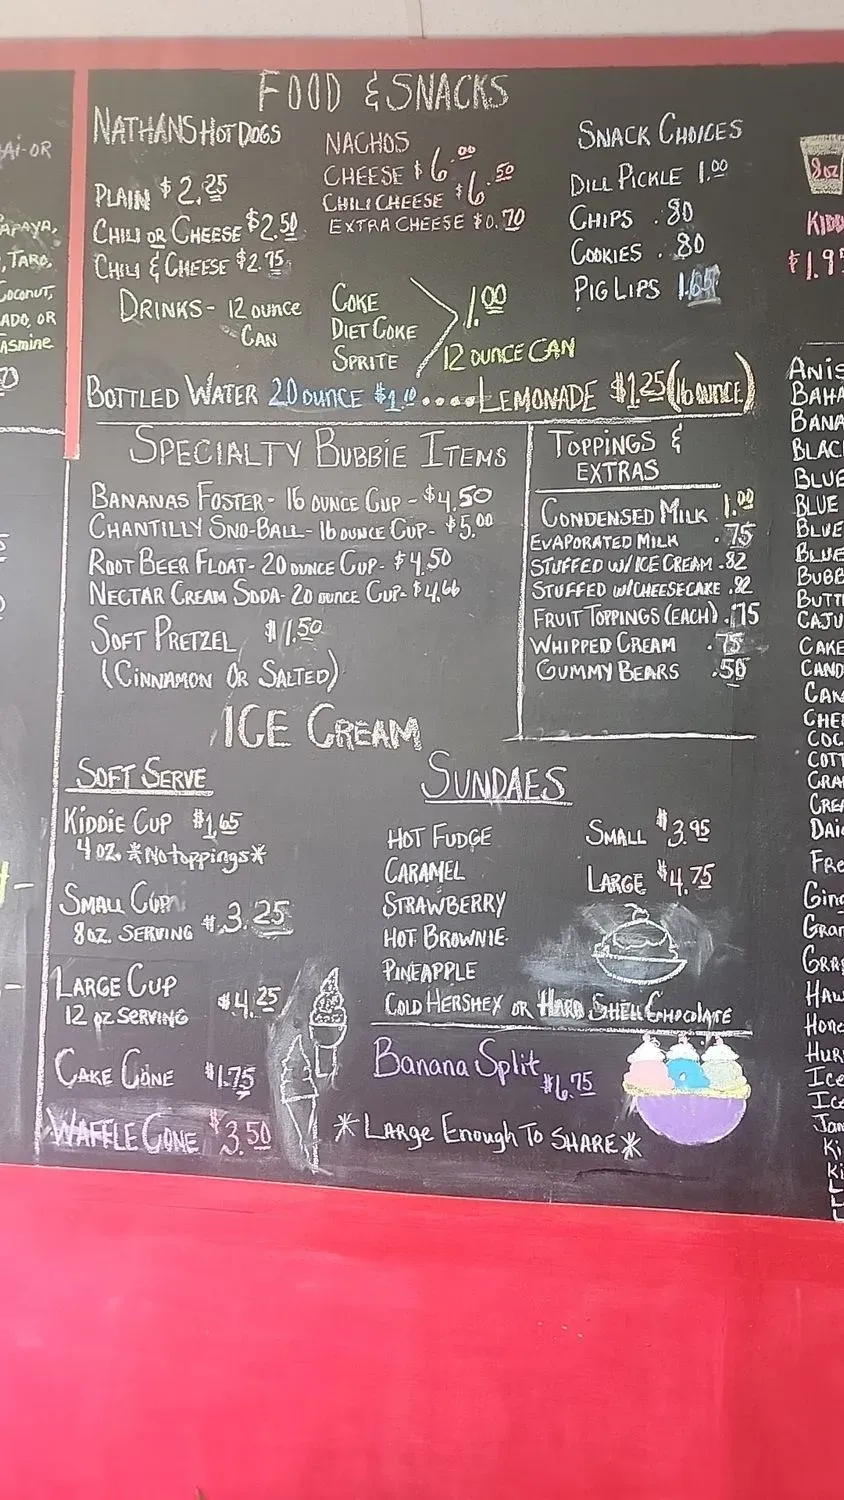 FOOD & SNACKS
NATHANS HOT DOGS
PLAIN $2.25
CHILI OR CHEESE $2.50
CHILI & CHEESE $2.75
NACHOS
CHEESE $6.00
CHILI CHEESE $6.50
EXTRA CHEESE $0.70
SNACK CHOICES
DILL PICKLE 1.00
CHIPS .80
COOKIES .80
PIG LIPS 1.65
DRINKS - 12 OUNCE CAN
COKE
DIET COKE
SPRITE
1.00
12 OUNCE CAN
BOTTLED WATER 20 OUNCE $1.10 .... LEMONADE $1.25 (16 OUNCE)
SPECIALTY BUBBIE ITEMS
BANANAS FOSTER - 16 OUNCE CUP - $4.50
CHANTILLY SNO-BALL - 16 OUNCE CUP - $5.00
ROOT BEER FLOAT - 20 OUNCE CUP - $4.50
NECTAR CREAM SODA - 20 OUNCE CUP - $4.66
SOFT PRETZEL $1.50
(CINNAMON OR SALTED)
TOPPINGS &
EXTRAS
CONDENSED MILK 1.00
EVAPORATED MILK .75
STUFFED W/ICE CREAM .82
STUFFED W/CHEESECAKE .82
FRUIT TOPPINGS (EACH) .75
WHIPPED CREAM .75
GUMMY BEARS .50
ICE CREAM
SOFT SERVE
KIDDIE CUP $1.65
4 OZ. *No toppings*
SMALL CUP $3.25
8OZ. SERVING
LARGE CUP $4.25
12 OZ SERVING
CAKE CONE $1.75
WAFFLE CONE $3.50
SUNDAES
HOT FUDGE
CARAMEL
STRAWBERRY
HOT BROWNIE
PINEAPPLE
COLD HERSHEY OR HARD SHELL CHOCOLATE
SMALL $3.95
LARGE $4.75
Banana Split $6.75
*LARGE ENOUGH TO SHARE*
8oz
$1.9
BLUE
BLUE
BLUE
CAKE
Ice
Ice